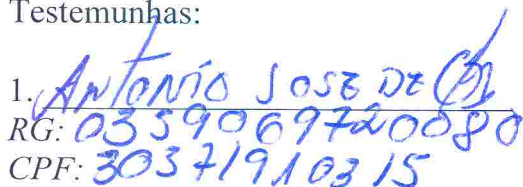 Testemunhas:
1. ANTONIO JOSE DE
RG: 0359069720080
CPF: 30371910315